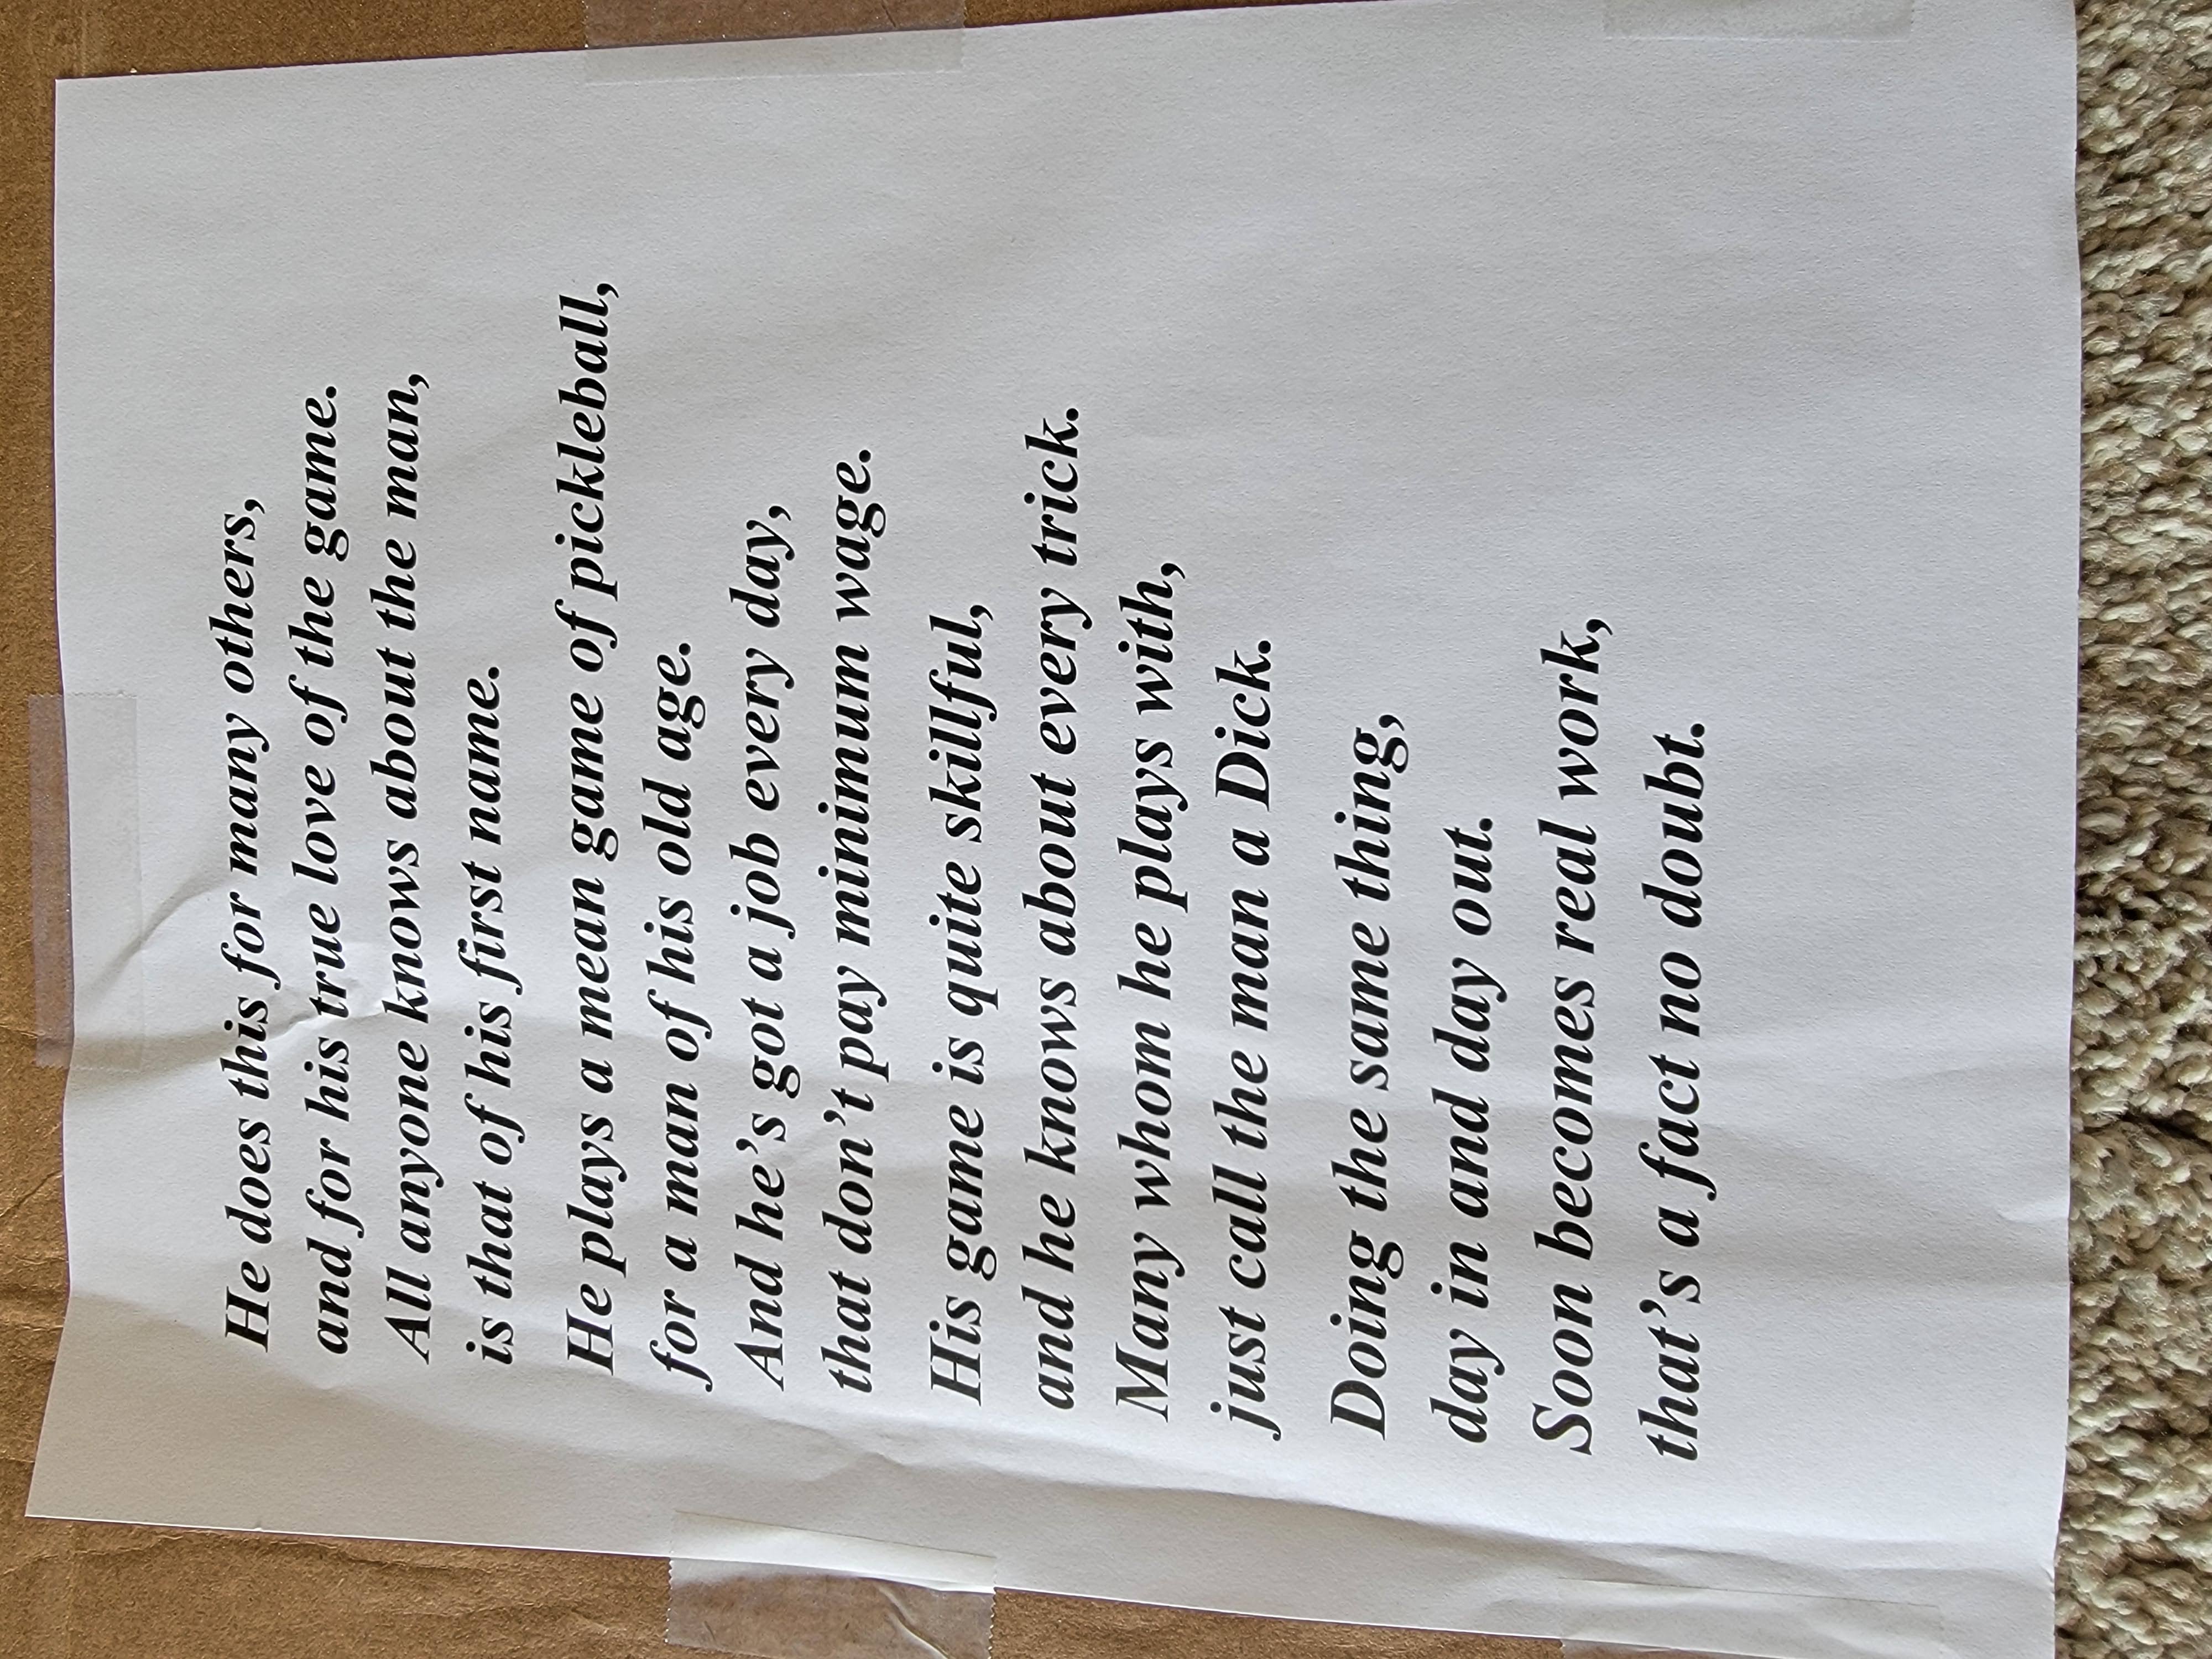 He does this for many others,
and for his true love of the game.
All anyone knows about the man,
is that of his first name.
He plays a mean game of pickleball,
for a man of his old age.
And he's got a job every day,
that don't pay minimum wage.
His game is quite skillful,
and he knows about every trick.
Many whom he plays with,
just call the man a Dick.
Doing the same thing,
day in and day out.
Soon becomes real work,
that's a fact no doubt.